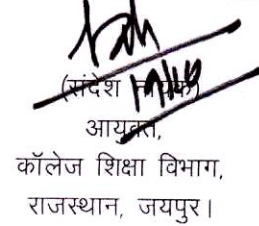 (संदेश नायक)
आयुक्त,
कॉलेज शिक्षा विभाग,
राजस्थान, जयपुर।